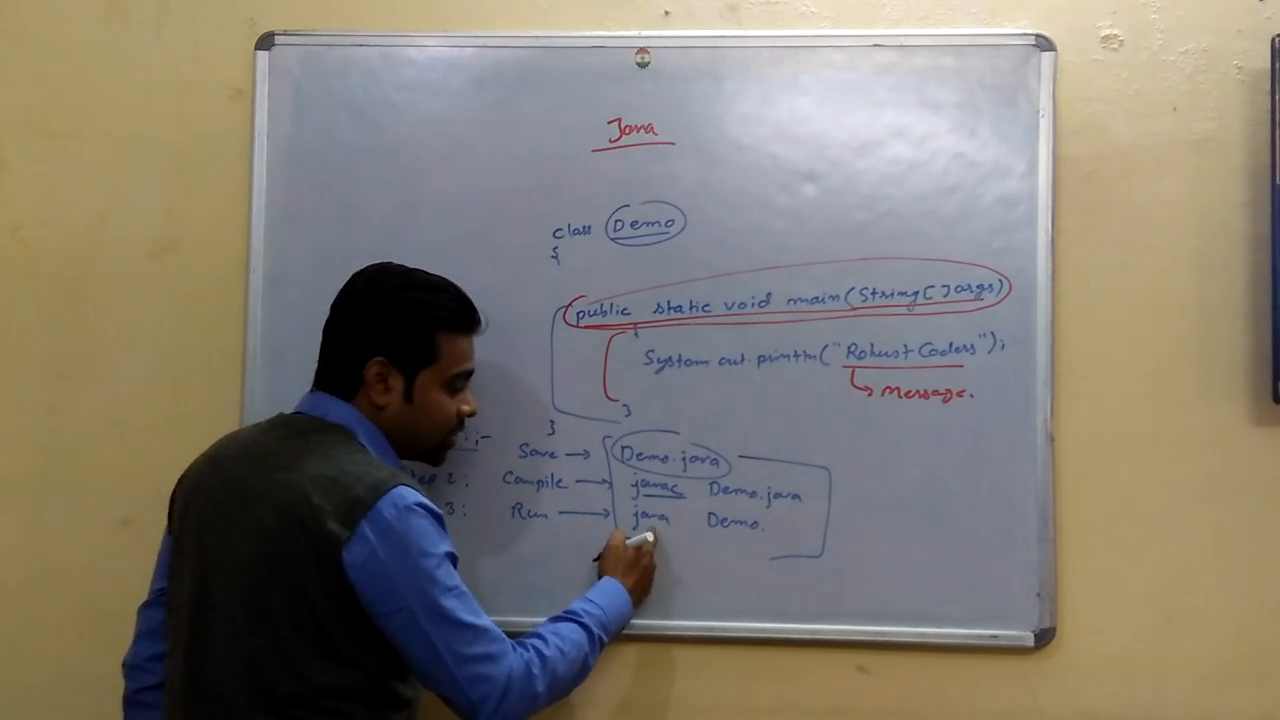 Java
class Demo
{
public static void main(String[] args)
{
System.out.println("Robust Coders");
message.
}
}
:-
Save → Demo.java
2: Compile → javac Demo.java
3: Run → java Demo.